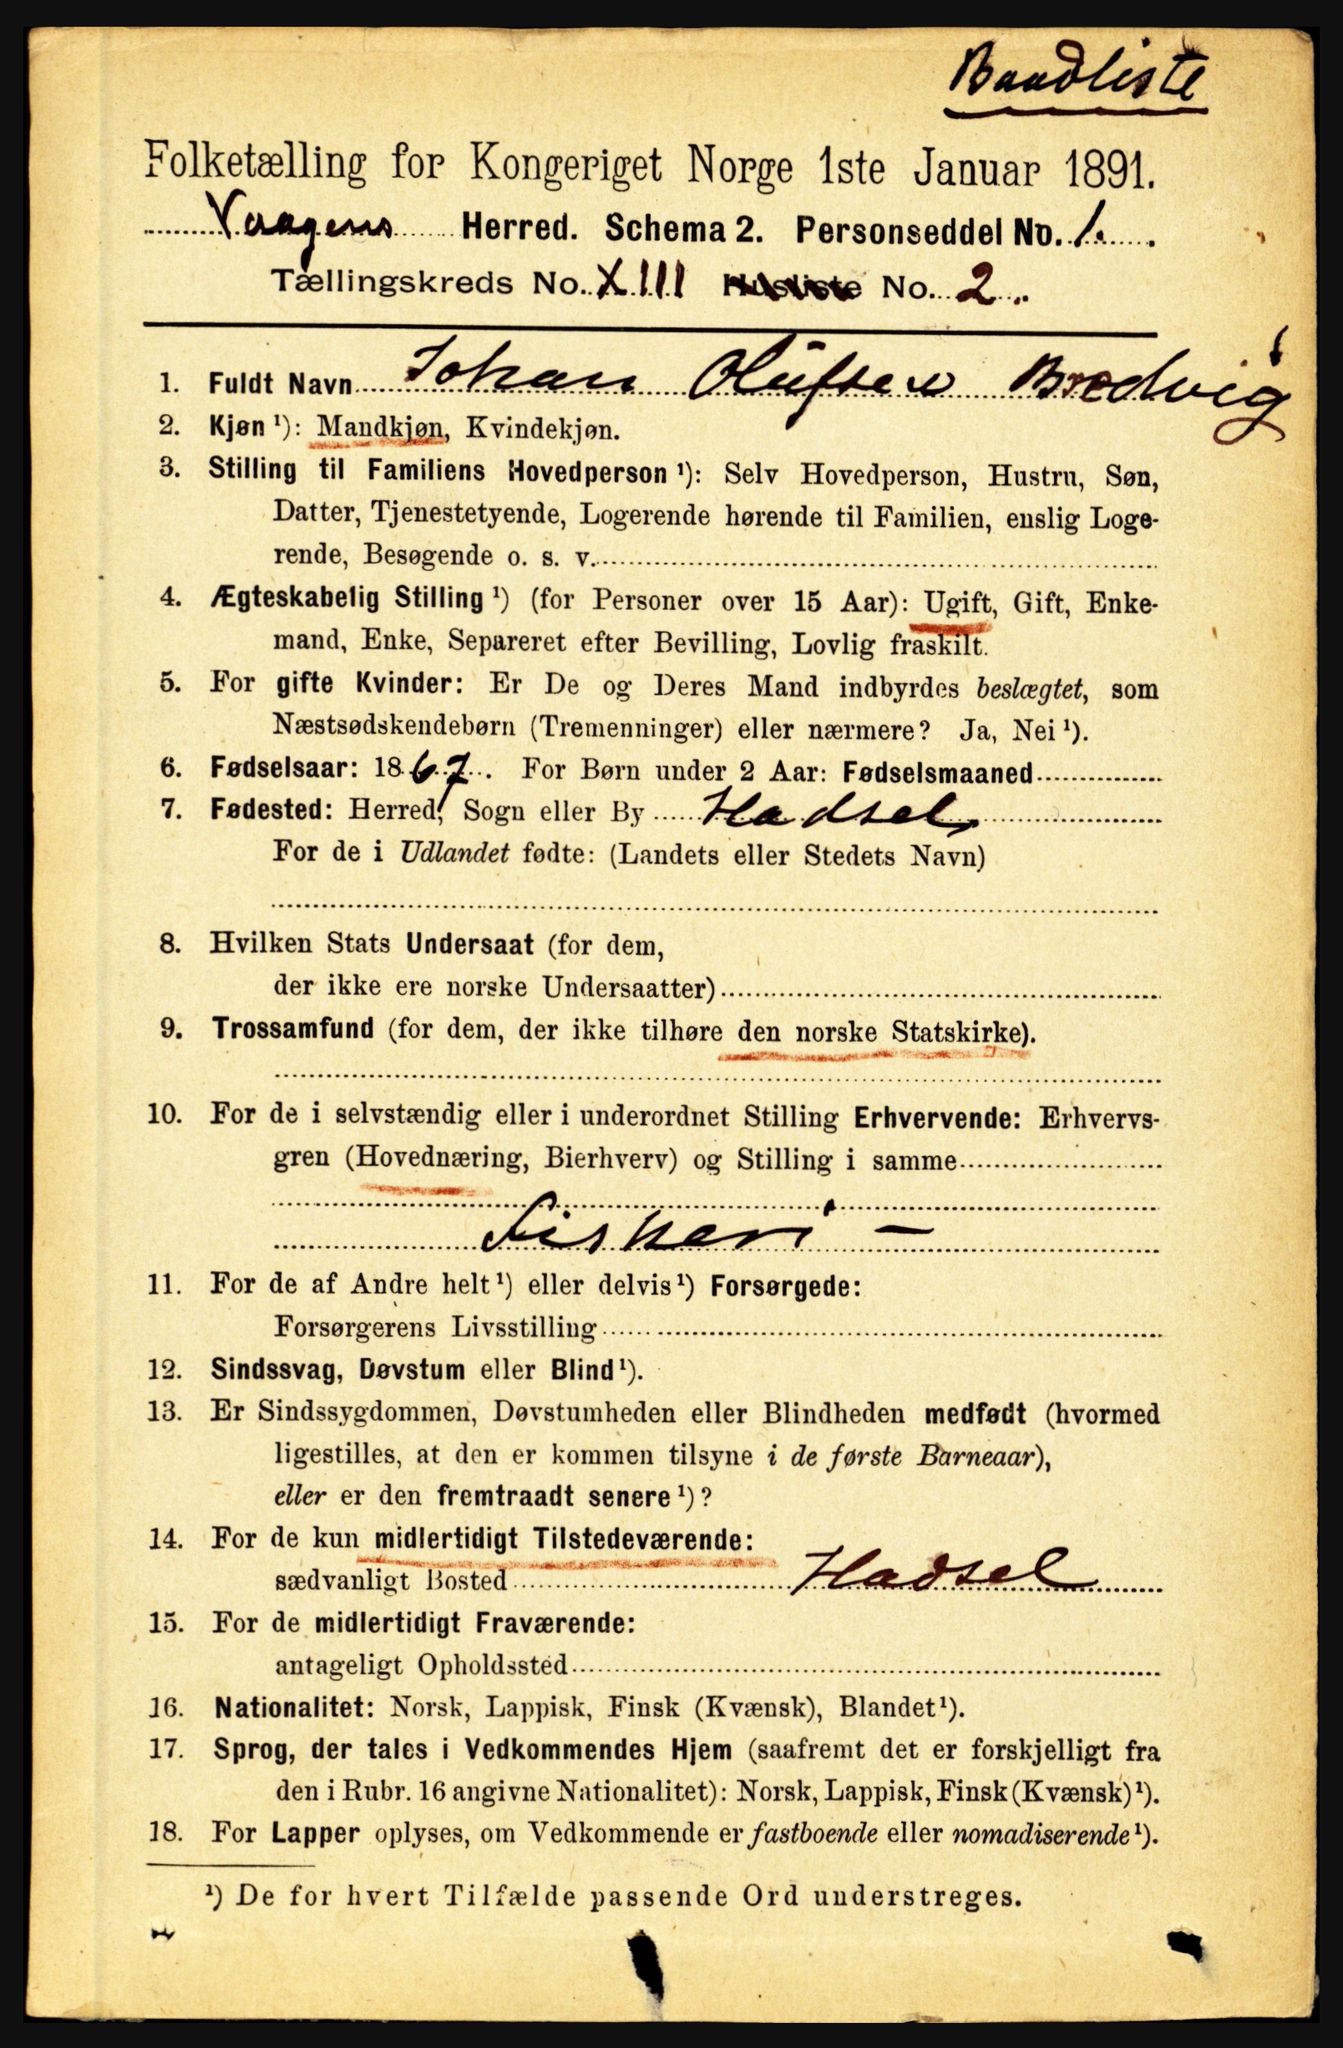 Baadliste
Folketælling for Kongeriget Norge 1ste Januar 1891.
Vaagens Herred. Schema 2. Personseddel No. 1.
Tællingskreds No. XIII Husliste No. 2.
1. Fuldt Navn Johan Olüfsen Bredvig
2. Kjøn ¹): Mandkjøn, Kvindekjøn.
3. Stilling til Familiens Hovedperson ¹): Selv Hovedperson, Hustru, Søn,
Datter, Tjenestetyende, Logerende hørende til Familien, enslig Loge-
rende, Besøgende o. s. v.
4. Ægteskabelig Stilling ¹) (for Personer over 15 Aar): Ugift, Gift, Enke-
mand, Enke, Separeret efter Bevilling, Lovlig fraskilt.
5. For gifte Kvinder: Er De og Deres Mand indbyrdes beslægtet, som
Næstsødskendebørn (Tremenninger) eller nærmere? Ja, Nei ¹).
6. Fødselsaar: 1867. For Børn under 2 Aar: Fødselsmaaned
7. Fødested: Herred, Sogn eller By Hadsel
For de i Udlandet fødte: (Landets eller Stedets Navn)
8. Hvilken Stats Undersaat (for dem,
der ikke ere norske Undersaatter)
9. Trossamfund (for dem, der ikke tilhøre den norske Statskirke).
10. For de i selvstændig eller i underordnet Stilling Erhvervende: Erhvervs-
gren (Hovednæring, Bierhverv) og Stilling i samme
Fiskeri –
11. For de af Andre helt ¹) eller delvis ¹) Forsørgede:
Forsørgerens Livsstilling
12. Sindssvag, Døvstum eller Blind ¹).
13. Er Sindssygdommen, Døvstumheden eller Blindheden medfødt (hvormed
ligestilles, at den er kommen tilsyne i de første Barneaar),
eller er den fremtraadt senere ¹)?
14. For de kun midlertidigt Tilstedeværende:
sædvanligt Bosted Hadsel
15. For de midlertidigt Fraværende:
antageligt Opholdssted
16. Nationalitet: Norsk, Lappisk, Finsk (Kvænsk), Blandet ¹).
17. Sprog, der tales i Vedkommendes Hjem (saafremt det er forskjelligt fra
den i Rubr. 16 angivne Nationalitet): Norsk, Lappisk, Finsk (Kvænsk) ¹).
18. For Lapper oplyses, om Vedkommende er fastboende eller nomadiserende ¹).
¹) De for hvert Tilfælde passende Ord understreges.